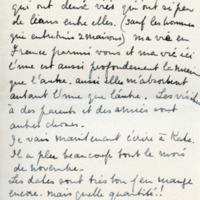 qui ont deux vies qui ont si peu
de liens entre elles. (Sauf les hommes
qui entretiennent 2 maisons) ma vie en
France parmi vous et ma vie ici
L'une est aussi profondément la mienne
que l'autre. aussi elles m'absorbent
autant l'une que l'autre. Les visites
à des parents et des amies sont
autre chose.
Je vais maintenant écrire à Kate.
Il a plu beaucoup tout le mois
de novembre.
Les dattes sont très bon j'en mange
encore. mais quelle quantité!!